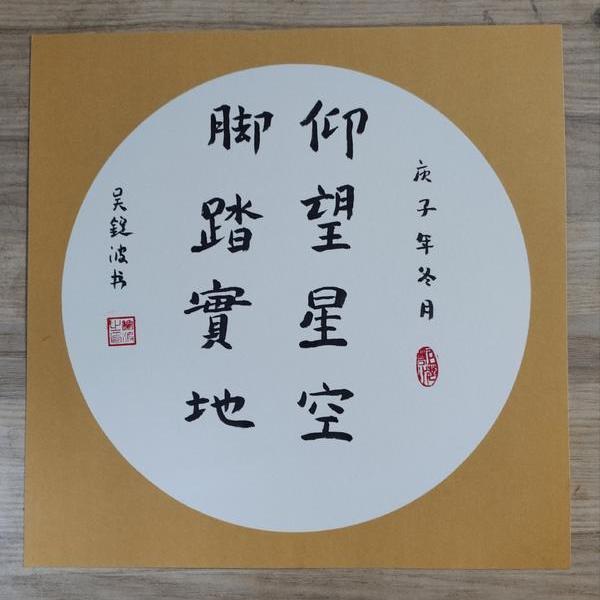 庚子年冬月
仰望星空
脚踏實地
吴鋭波书